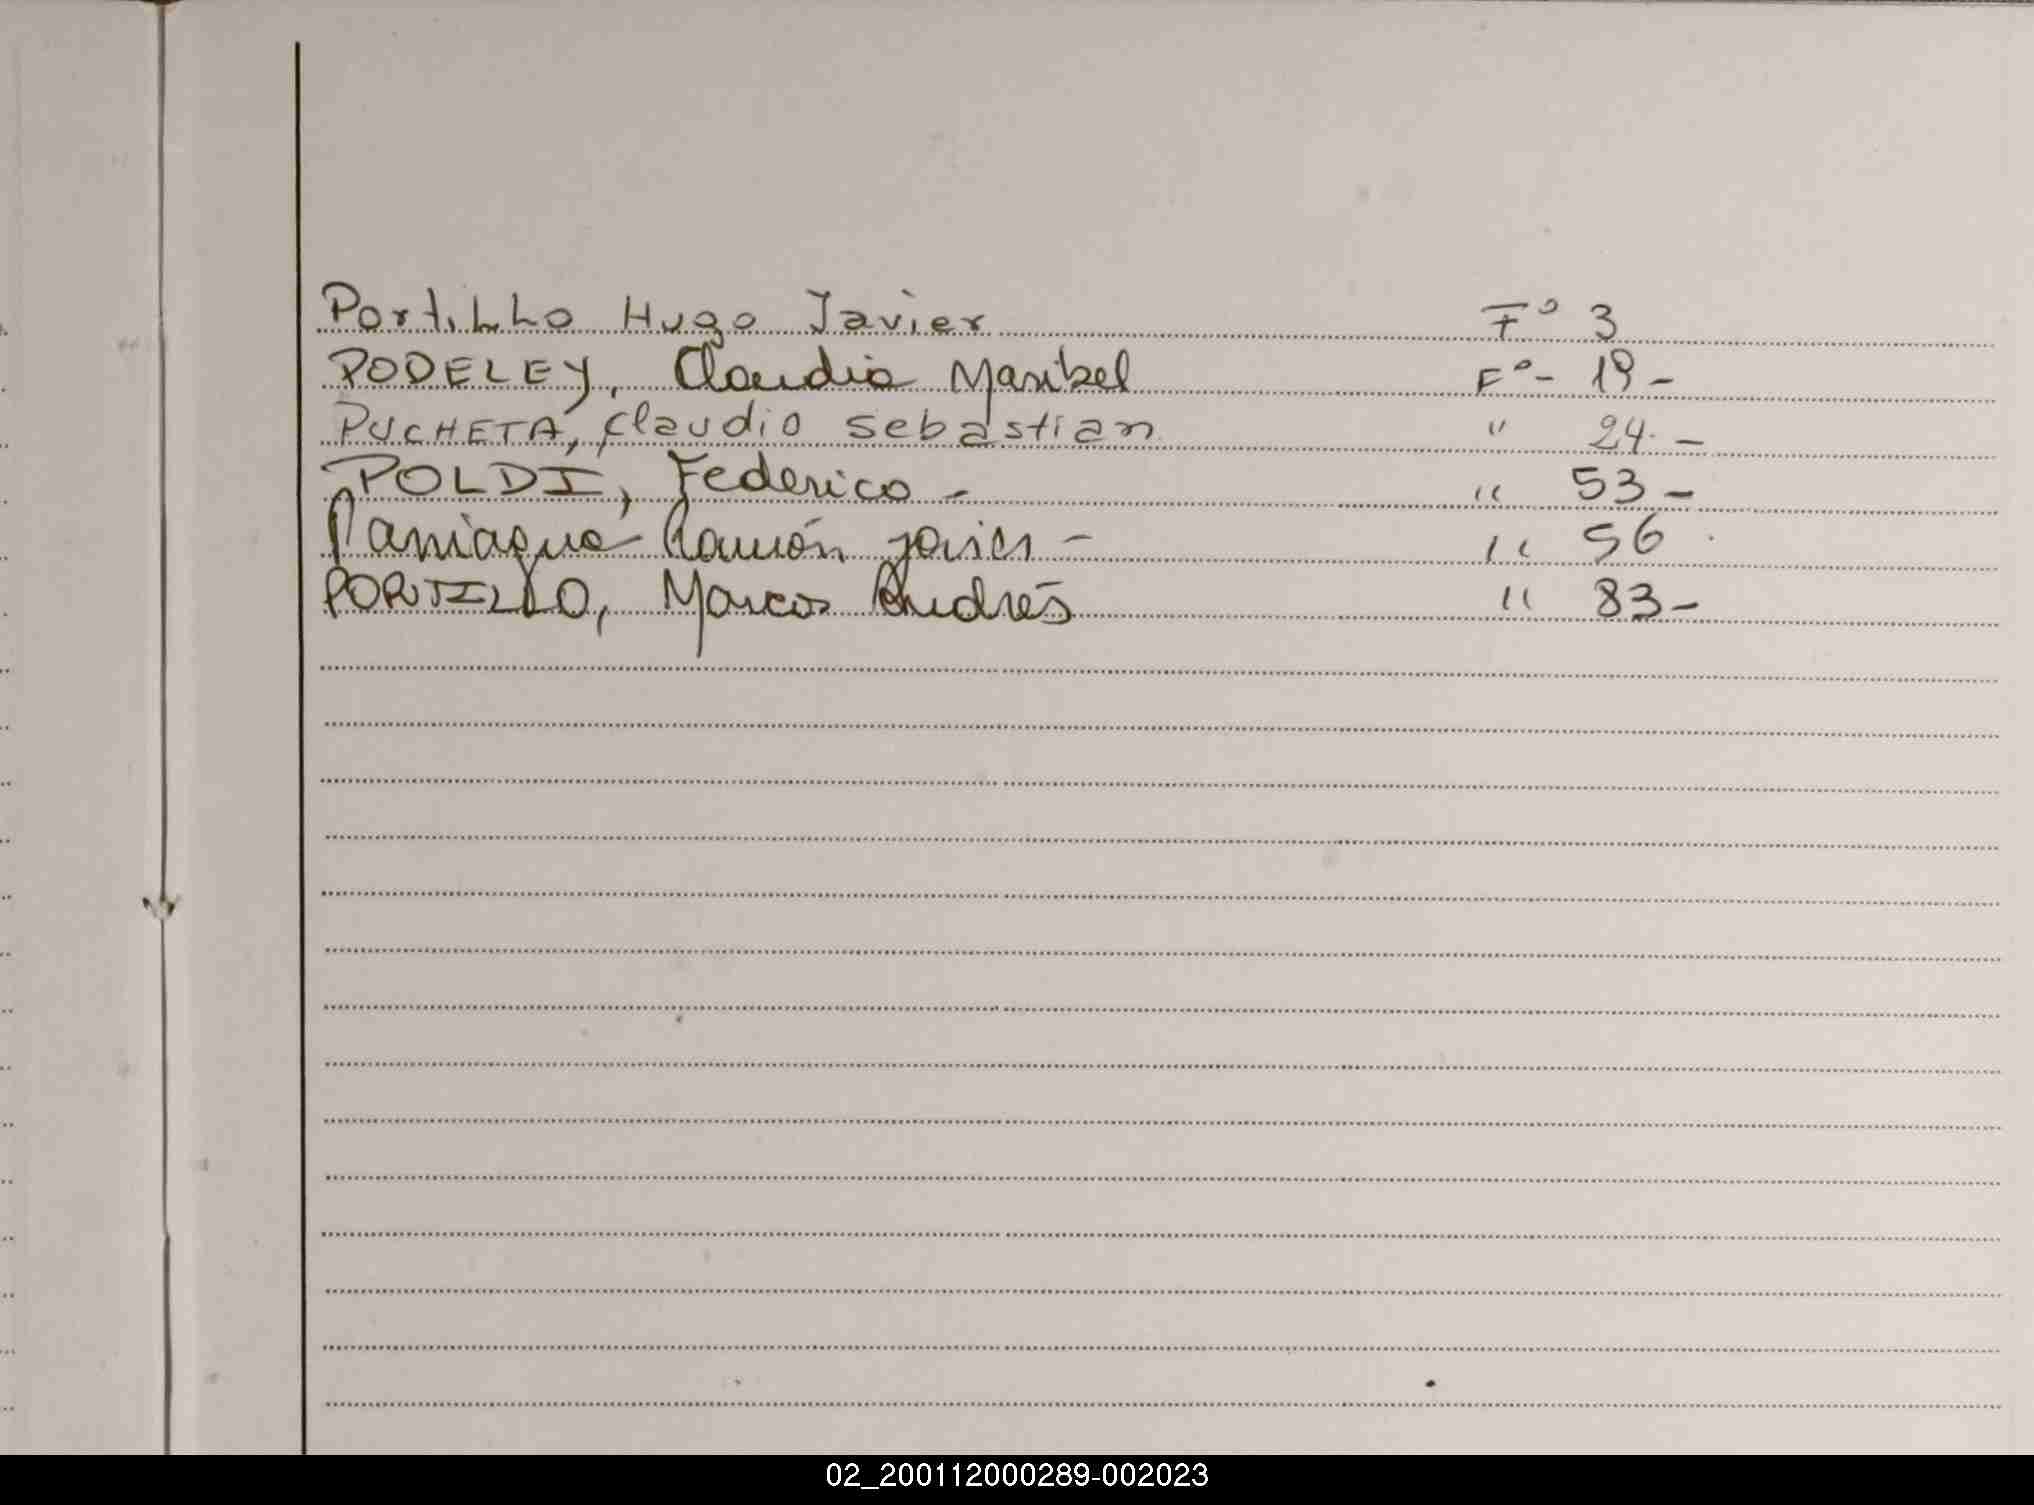 Portillo Hugo Javier F° 3
PODELEY, Claudia Maribel F°- 19-
PUCHETA, Claudio Sebastian " 24.-
POLDI, Federico - " 53-
Paniagua Ramón Javier - " 56.
PORTILLO, Marcos Andrés " 83-
02_200112000289-002023